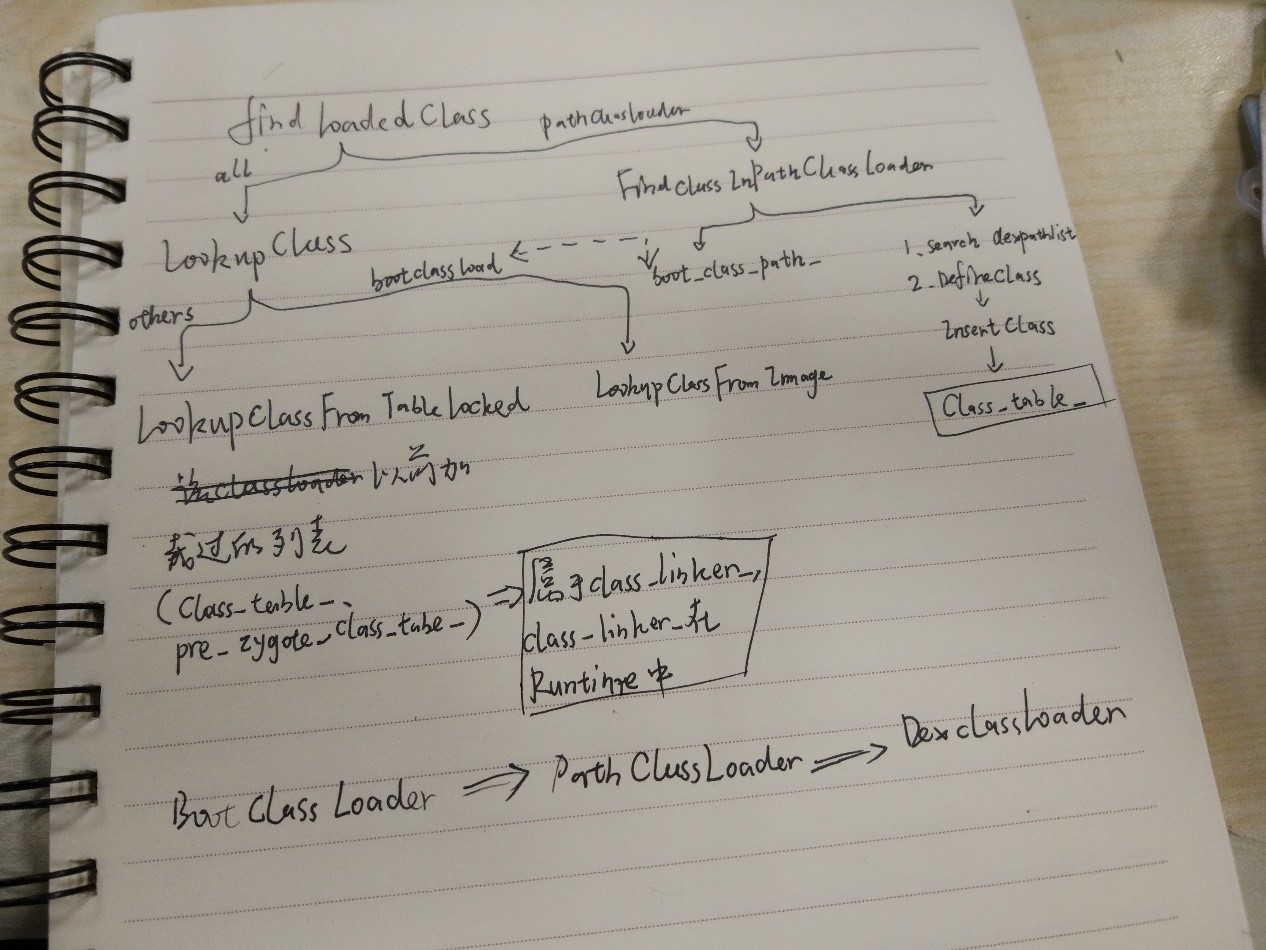 findLoadedClass
pathclassloader
all
FindClassInPathClassLoader
LookupClass
1. search dexpathlist
bootclassload
boot_class_path_
2. DefineClass
others
InsertClass
LookupClassFromTableLocked
LookupClassFromImage
Class_table_
以前加
载过的列表
(Class_table_、
pre_zygote_class_table_)
属于class_linker_,
class_linker_在
Runtime中
BootClassLoader
PathClassLoader
DexclassLoader